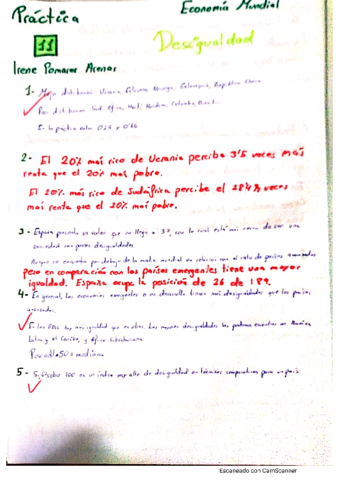 Práctica
Economía Mundial
11
Desigualdad
Irene Pomares Arenas
1- Mejor distribución: Ucrania, Eslovenia, Noruega, Eslovaquia, República Checa
Peor distribución: Sud África, Haití, Honduras, Colombia, Brasil
En la práctica entre 0'25 y 0'
2- El 20% más rico de Ucrania percibe 3'5 veces más
renta que el 20% más pobre.
El 20% más rico de Sudáfrica percibe el veces
más renta que el 20% más pobre.
3- España presenta un valor que no llega a con lo cual está más cerca de ser una
sociedad con pocas desigualdades
se encuentra por debajo de la media mundial en relación con el resto de países avanzados
pero en comparación con los países emergentes tiene una mayor
igualdad. España ocupa la posición de 26 de 189.
4- En general, las economías emergentes o en desarrollo tienen más desigualdades que los países
avanzados.
En los hay más igualdad que en otros. Las mayores desigualdades las podemos encontrar en América
Latina y el Caribe, y África Subsahariana.
5- sobre 100 es un índice muy alto de desigualdad en términos comparativos para un país
Escaneado con CamScanner